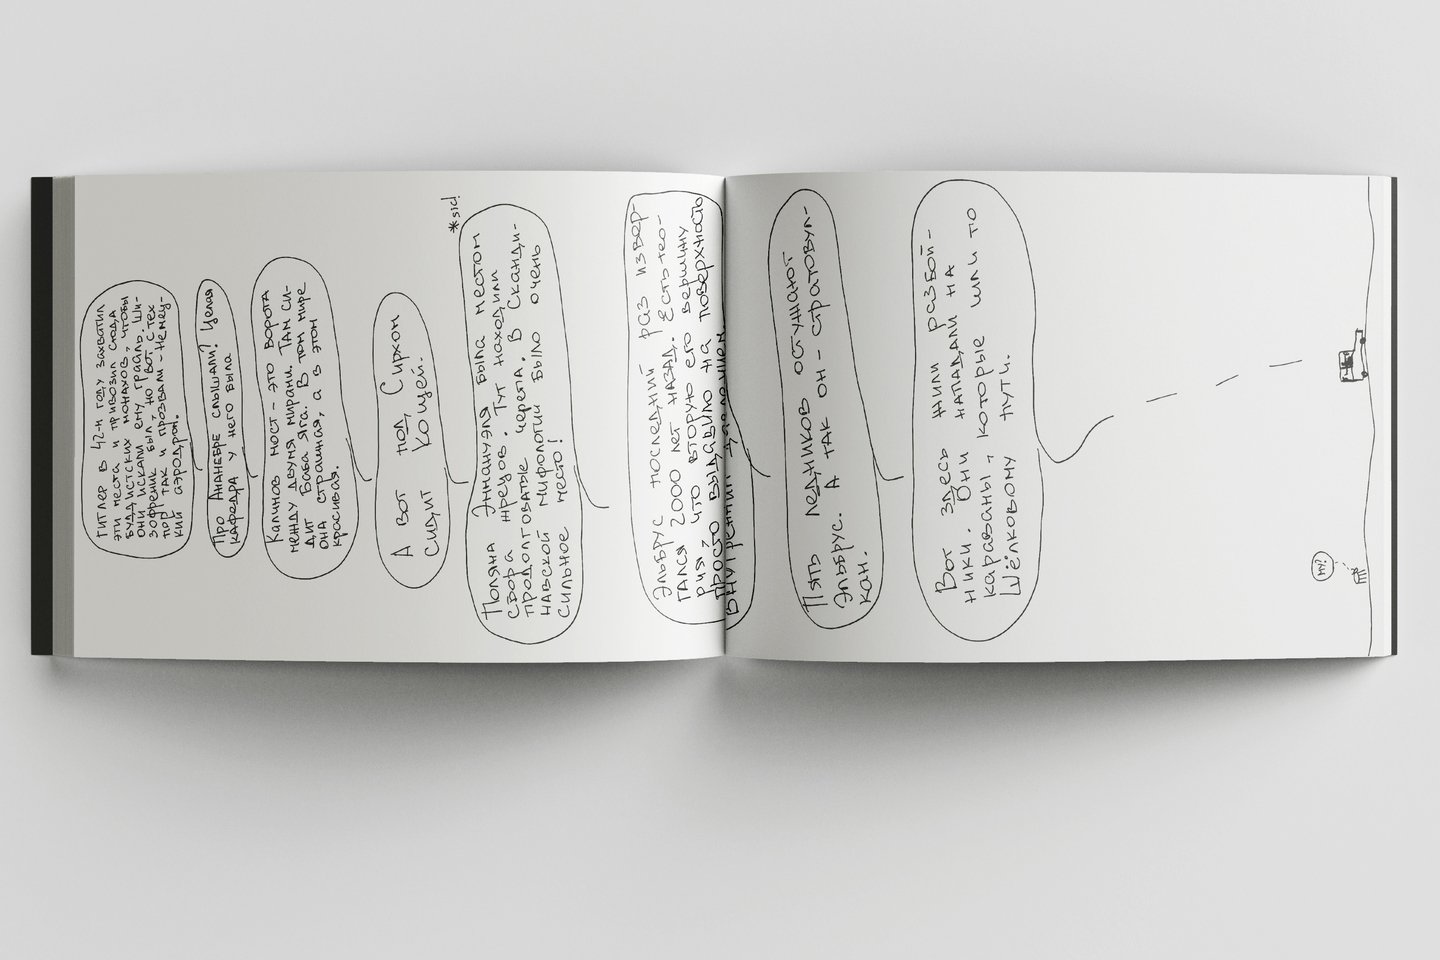 Гитлер в 42-м году захватил
эти места и привозил сюда
буддистских монахов, чтобы
они искали ему грааль. Ши-
зофреник был, но вот с тех
пор так и прозвали - Немец-
кий аэродром.
Про Аненербе слышали? Целая
кафедра у него была
Калинов мост - это ворота
между двумя мирами. Там си-
дит Баба Яга. В том мире
она страшная, а в этом
красивая.
А вот под Сирхом
сидит Кощей.
*sic!
Поляна Эммануэля была местом
сбора жрецов. Тут находили
продолговатые черепа. В Сканди-
навской мифологии было очень
сильное место!
Эльбрус последний раз извер-
гался 2000 лет назад. Есть тео-
рия, что вторую его вершину
просто выдавило на поверхность
внутренним давлением.
Пять ледников остужают
Эльбрус. А так он - стратовул-
кан.
Вот здесь жили разбой-
ники. Они нападали на
караваны, которые шли по
Шёлковому пути.